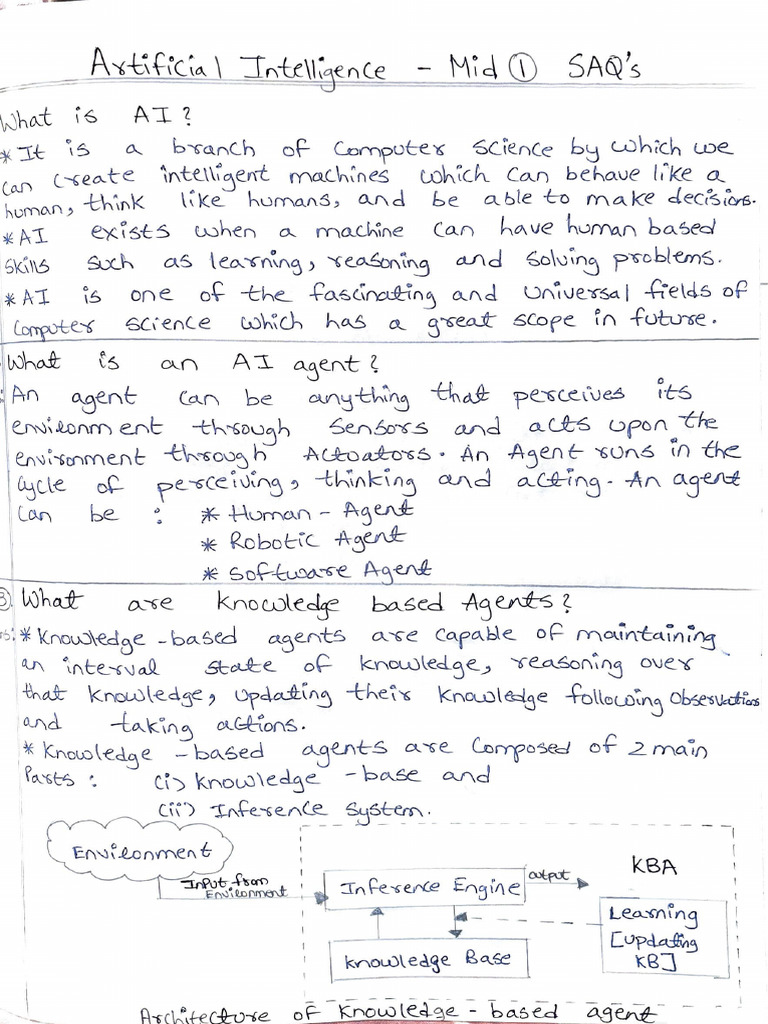 Artificial Intelligence - Mid ① SAQ's
What is AI?
* It is a branch of computer science by which we
can create intelligent machines which can behave like a
human, think like humans, and be able to make decisions.
* AI exists when a machine can have human based
skills such as learning, reasoning and solving problems.
* AI is one of the fascinating and universal fields of
computer science which has a great scope in future.
What is an AI agent?
An agent can be anything that perceives its
environment through Sensors and acts upon the
environment through Actuators. An Agent runs in the
cycle of perceiving, thinking and acting. An agent
can be : * Human - Agent
* Robotic Agent
* Software Agent
③ What are knowledge based Agents?
* Knowledge - based agents are capable of maintaining
an interval state of knowledge, reasoning over
that knowledge, updating their knowledge following observations
and taking actions.
* Knowledge - based agents are composed of 2 main
Parts : (i) knowledge - base and
(ii) Inference System.
Environment
Input from
Environment
Inference Engine
output
KBA
Learning
[Updating
KB]
Knowledge Base
Architecture of knowledge - based agent